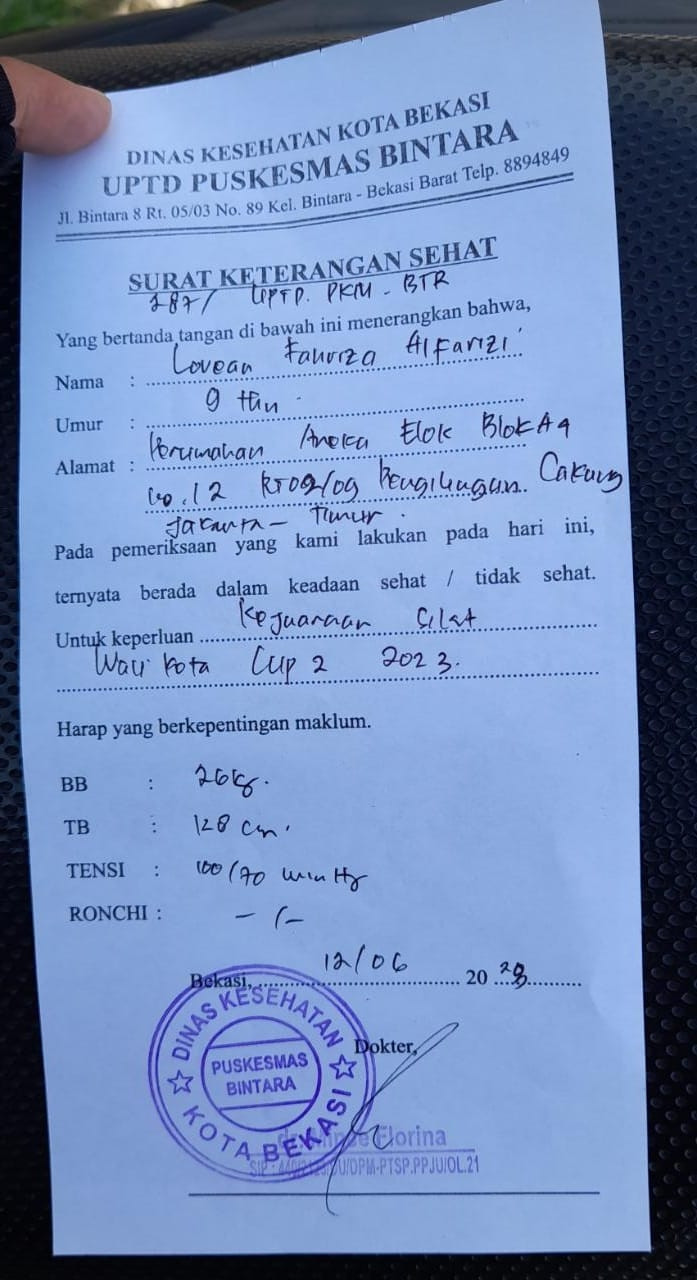 DINAS KESEHATAN KOTA BEKASI
UPTD PUSKESMAS BINTARA
Jl. Bintara 8 Rt. 05/03 No. 89 Kel. Bintara - Bekasi Barat Telp. 8894849
SURAT KETERANGAN SEHAT
287/ UPTD. PKM - BTR
Yang bertanda tangan di bawah ini menerangkan bahwa,
Nama : Lovean Fahriza Alfarizi
Umur : 9 thn.
Alamat : Perumahan Aneka Elok Blok A9
No.12 RT09/09 Penggilingan. Cakung
Jakarta - Timur.
Pada pemeriksaan yang kami lakukan pada hari ini,
ternyata berada dalam keadaan sehat / tidak sehat.
Untuk keperluan Kejuaraan Silat
Wali Kota Cup 2 2023.
Harap yang berkepentingan maklum.
BB : 26 kg.
TB : 128 cm.
TENSI : 100/70 mmHg
RONCHI : - / -
Bekasi, 12/06 20 23
Dokter,
DINAS KESEHATAN
PUSKESMAS
BINTARA
KOTA BEKASI
Florina